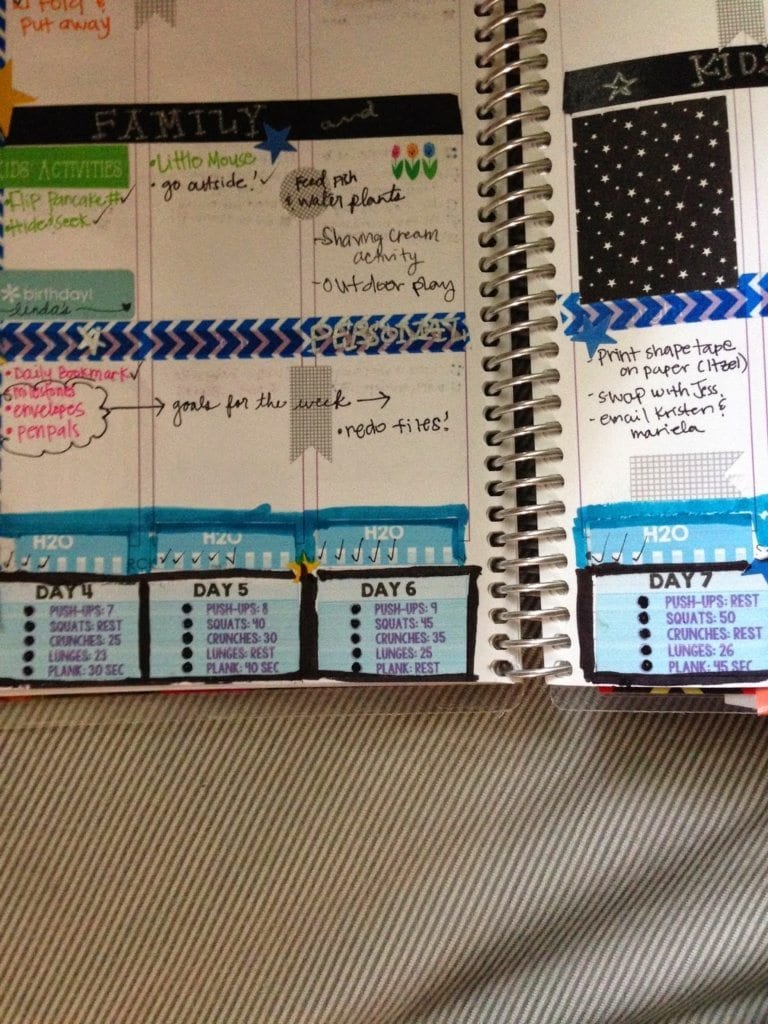 Fold &
Put away
FAMILY and
KIDS
KIDS ACTIVITIES
• Flip Pancake
• Hide & Seek ✓
* birthday!
linda's
• Little Mouse
• go outside! ✓
Feed Fish
& water plants
- Shaving cream
activity
- Outdoor play
PERSONAL
• Daily Bookmark ✓
• milestones
• envelopes
• penpals
goals for the week
• redo files!
- Print shape tape
on paper (Itzel)
- swap with Jess.
- email Kristen &
mariela
H2O
H2O
H2O
H2O
DAY 4
PUSH-UPS: 7
SQUATS: REST
CRUNCHES: 25
LUNGES: 23
PLANK: 30 SEC
DAY 5
PUSH-UPS: 8
SQUATS: 40
CRUNCHES: 30
LUNGES: REST
PLANK: 40 SEC
DAY 6
PUSH-UPS: 9
SQUATS: 45
CRUNCHES: 35
LUNGES: 25
PLANK: REST
DAY 7
PUSH-UPS: REST
SQUATS: 50
CRUNCHES: REST
LUNGES: 26
PLANK: 45 SEC